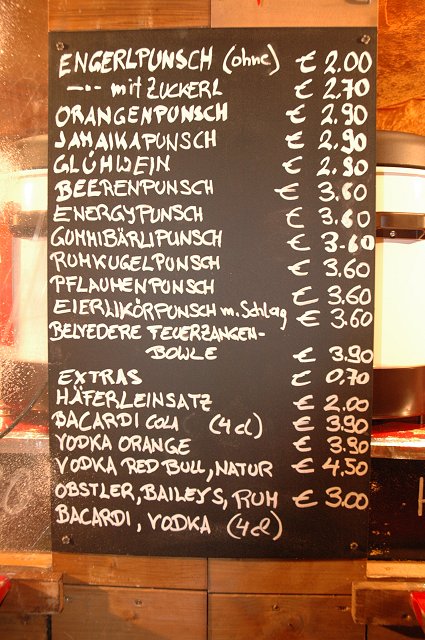 ENGERLPUNSCH (ohne) € 2.00
–·– mit ZUCKERL € 2.70
ORANGENPUNSCH € 2.90
JAMAIKAPUNSCH € 2.90
GLÜHWEIN € 2.90
BEERENPUNSCH € 3.60
ENERGYPUNSCH € 3.60
GUMMIBÄRLIPUNSCH € 3.60
RUMKUGELPUNSCH € 3.60
PFLAUMENPUNSCH € 3.60
EIERLIKÖRPUNSCH m. Schlag € 3.60
BELVEDERE FEUERZANGEN-
BOWLE € 3.90
EXTRAS € 0,70
HÄFERLEINSATZ € 2.00
BACARDI COLA (4 cl) € 3.90
VODKA ORANGE € 3.90
VODKA RED BULL, NATUR € 4.50
OBSTLER, BAILEYS, RUM € 3.00
BACARDI, VODKA (4 cl)